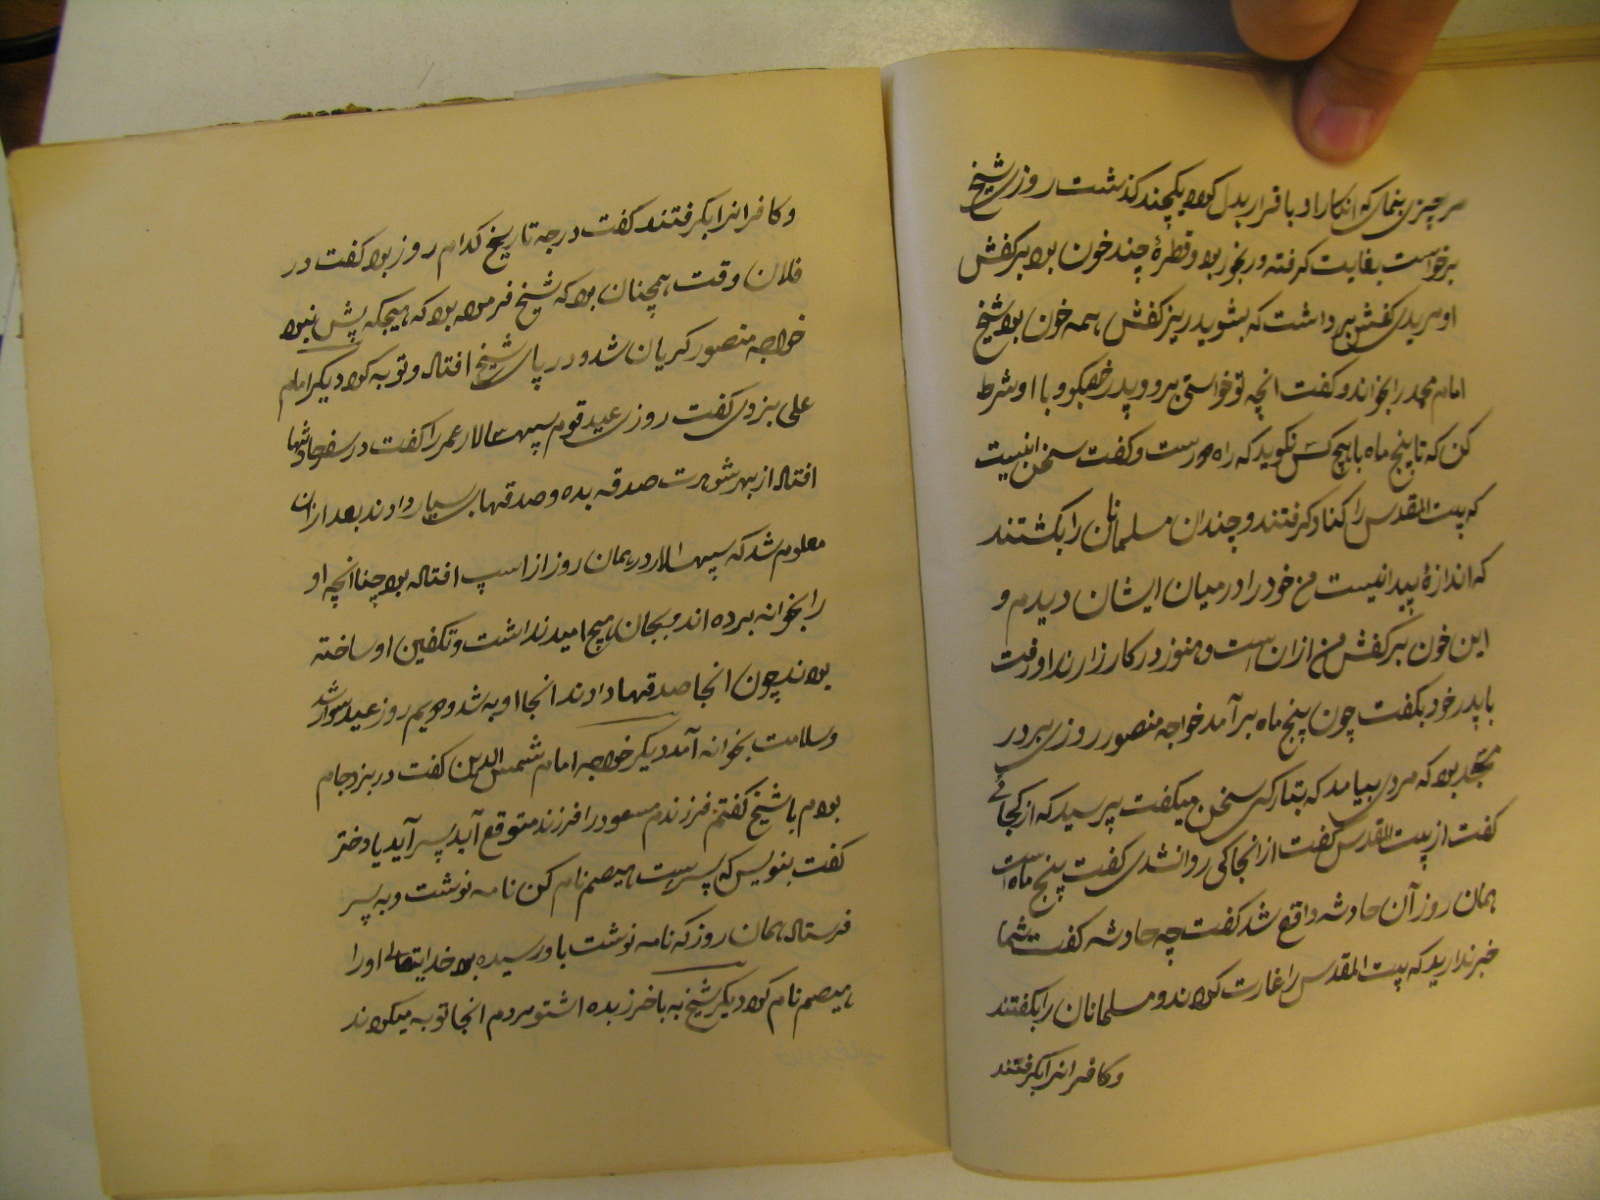 هر چیزی بنمای که انکار او باقرار بدل کرد یکچند گذشت روزی شیخ
برخواست بغایت کرفته و رنجور بود و قطرهٔ چند خون بود بر کفش
او مریدی کفش برداشت که بشوید ریز کفش همه خون بود شیخ
امام محمد را بخواند و کفت انچه تو خواستی برو و پدر خود بکو و با او شرط
کن که تا پنج ماه با هیچ کس نکوید که راه دورست و کفت سخن اینست
که بیت المقدس را کفار کرفتند و چندان مسلمانان را بکشتند
که اندازهٔ پیدا نیست من خود را در میان ایشان دیدم و
این خون بر کفش من از ان است و هنوز در کارزارند او رفت
با پدر خود بکفت چون پنج ماه برآمد خواجه منصور روزی بر در
مسجد بود که مردی بیامد که بتازکی سخن میکفت پرسید که از کجائی
کفت از بیت المقدس کفت از انجا کی روانشدی کفت پنج ماه است
همان روز آن حادثه واقع شد کفت چه حادثه کفت شما
خبر ندارید که بیت المقدس را غارت کردند و مسلمانان را بکشتند
و کافرانرا بکرفتند
و کافرانرا بکرفتند کفت در چه تاریخ کدام روز بود کفت در
فلان وقت همچنان بود که شیخ فرموده بود که هیچکه پش نبود
خواجه منصور کریان شد و در پای شیخ افتاد و توبه کرد دیکر امام
علی بزدی کفت روزی عید قوم سپهسالار عمر را کفت در سفر حادثها
افتد از بهر شوهرت صدقه بده و صدقهاء بسیار دادند بعد ازان
معلوم شد که سپهسالار در همان روز از اسپ افتاده بود چناانچه او
را بخوانه برده اند و بجان هیچ امید نداشت و تکفین او ساخته
بودند چون انجا صدقهها دادند انجا او به شد و سیم روز عید سوار شد
و سلامت بخوانه آمد دیکر خواجه امام شمس الدین کفت در بزد جام
بودم با شیخ کفتم فرزندم مسعود را فرزند متوقع آید پسر آید یا دختر
کفت بنویس که پسرست میصم نام کن نامه نوشت و به پسر
فرستاد همان روز که نامه نوشت باو رسیده بود خدایتعالی او را
میصم نام کرد دیکر شیخ به باخرز بده اشتو مردم انجا توبه میکردند